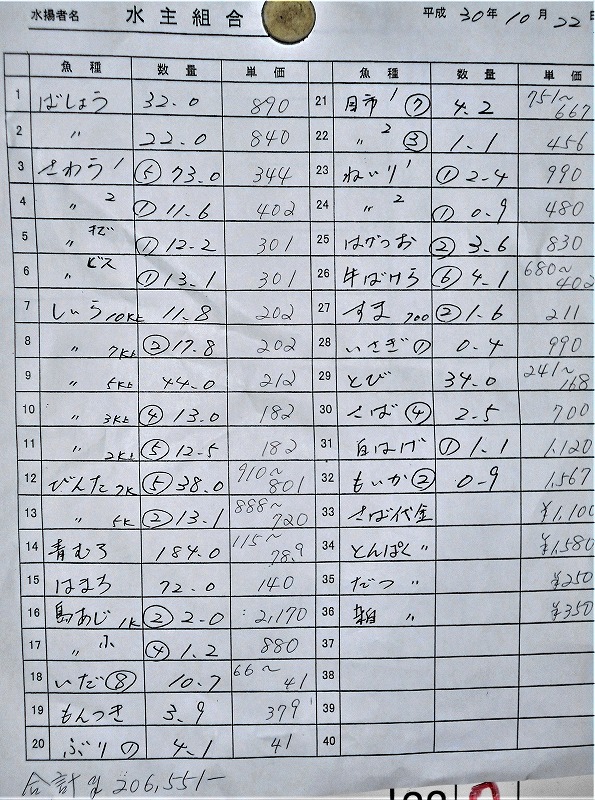 水揚者名 水主組合 平成 30年 10月 22日
魚種 数量 単価
1 ばしょう 32.0 890
2 〃 22.0 840
3 さわら 1 ⑤ 73.0 344
4 〃 2 ① 11.6 402
5 〃 ① 12.2 301
6 〃 ① 13.1 301
7 しいら 10K上 11.8 202
8 〃 7K上 ③ 17.8 202
9 〃 5K上 44.0 212
10 〃 3K上 ④ 13.0 182
11 〃 2K上 ⑤ 12.5 182
12 びんた 7K ⑤ 38.0 910〜801
13 〃 5K ② 13.1 888〜720
14 青むろ 184.0 115〜78.9
15 はまち 72.0 140
16 島あじ 1K ② 2.0 2,170
17 〃 小 ④ 1.2 880
18 いだ ⑧ 10.7 66〜41
19 もんつき 3.9 379
20 ぶりの 4.1 41
魚種 数量 単価
21 目市 1 ⑦ 4.2 751〜667
22 〃 2 ③ 1.1 456
23 ねいり 1 ① 2.4 990
24 〃 2 ① 0.9 480
25 はがつお ② 3.6 830
26 牛ばけら ⑥ 4.1 680〜402
27 すま 700 ② 1.6 211
28 いさぎの 0.4 990
29 とび 34.0 241〜168
30 さば ④ 2.5 700
31 白はげ ① 1.1 1,120
32 もいか ② 0.9 1,567
33 さば代金 ¥1,100
34 とんぱく 〃 ¥1,580
35 だつ 〃 ¥250
36 〃 ¥350
37
38
39
40
合計 206,551-